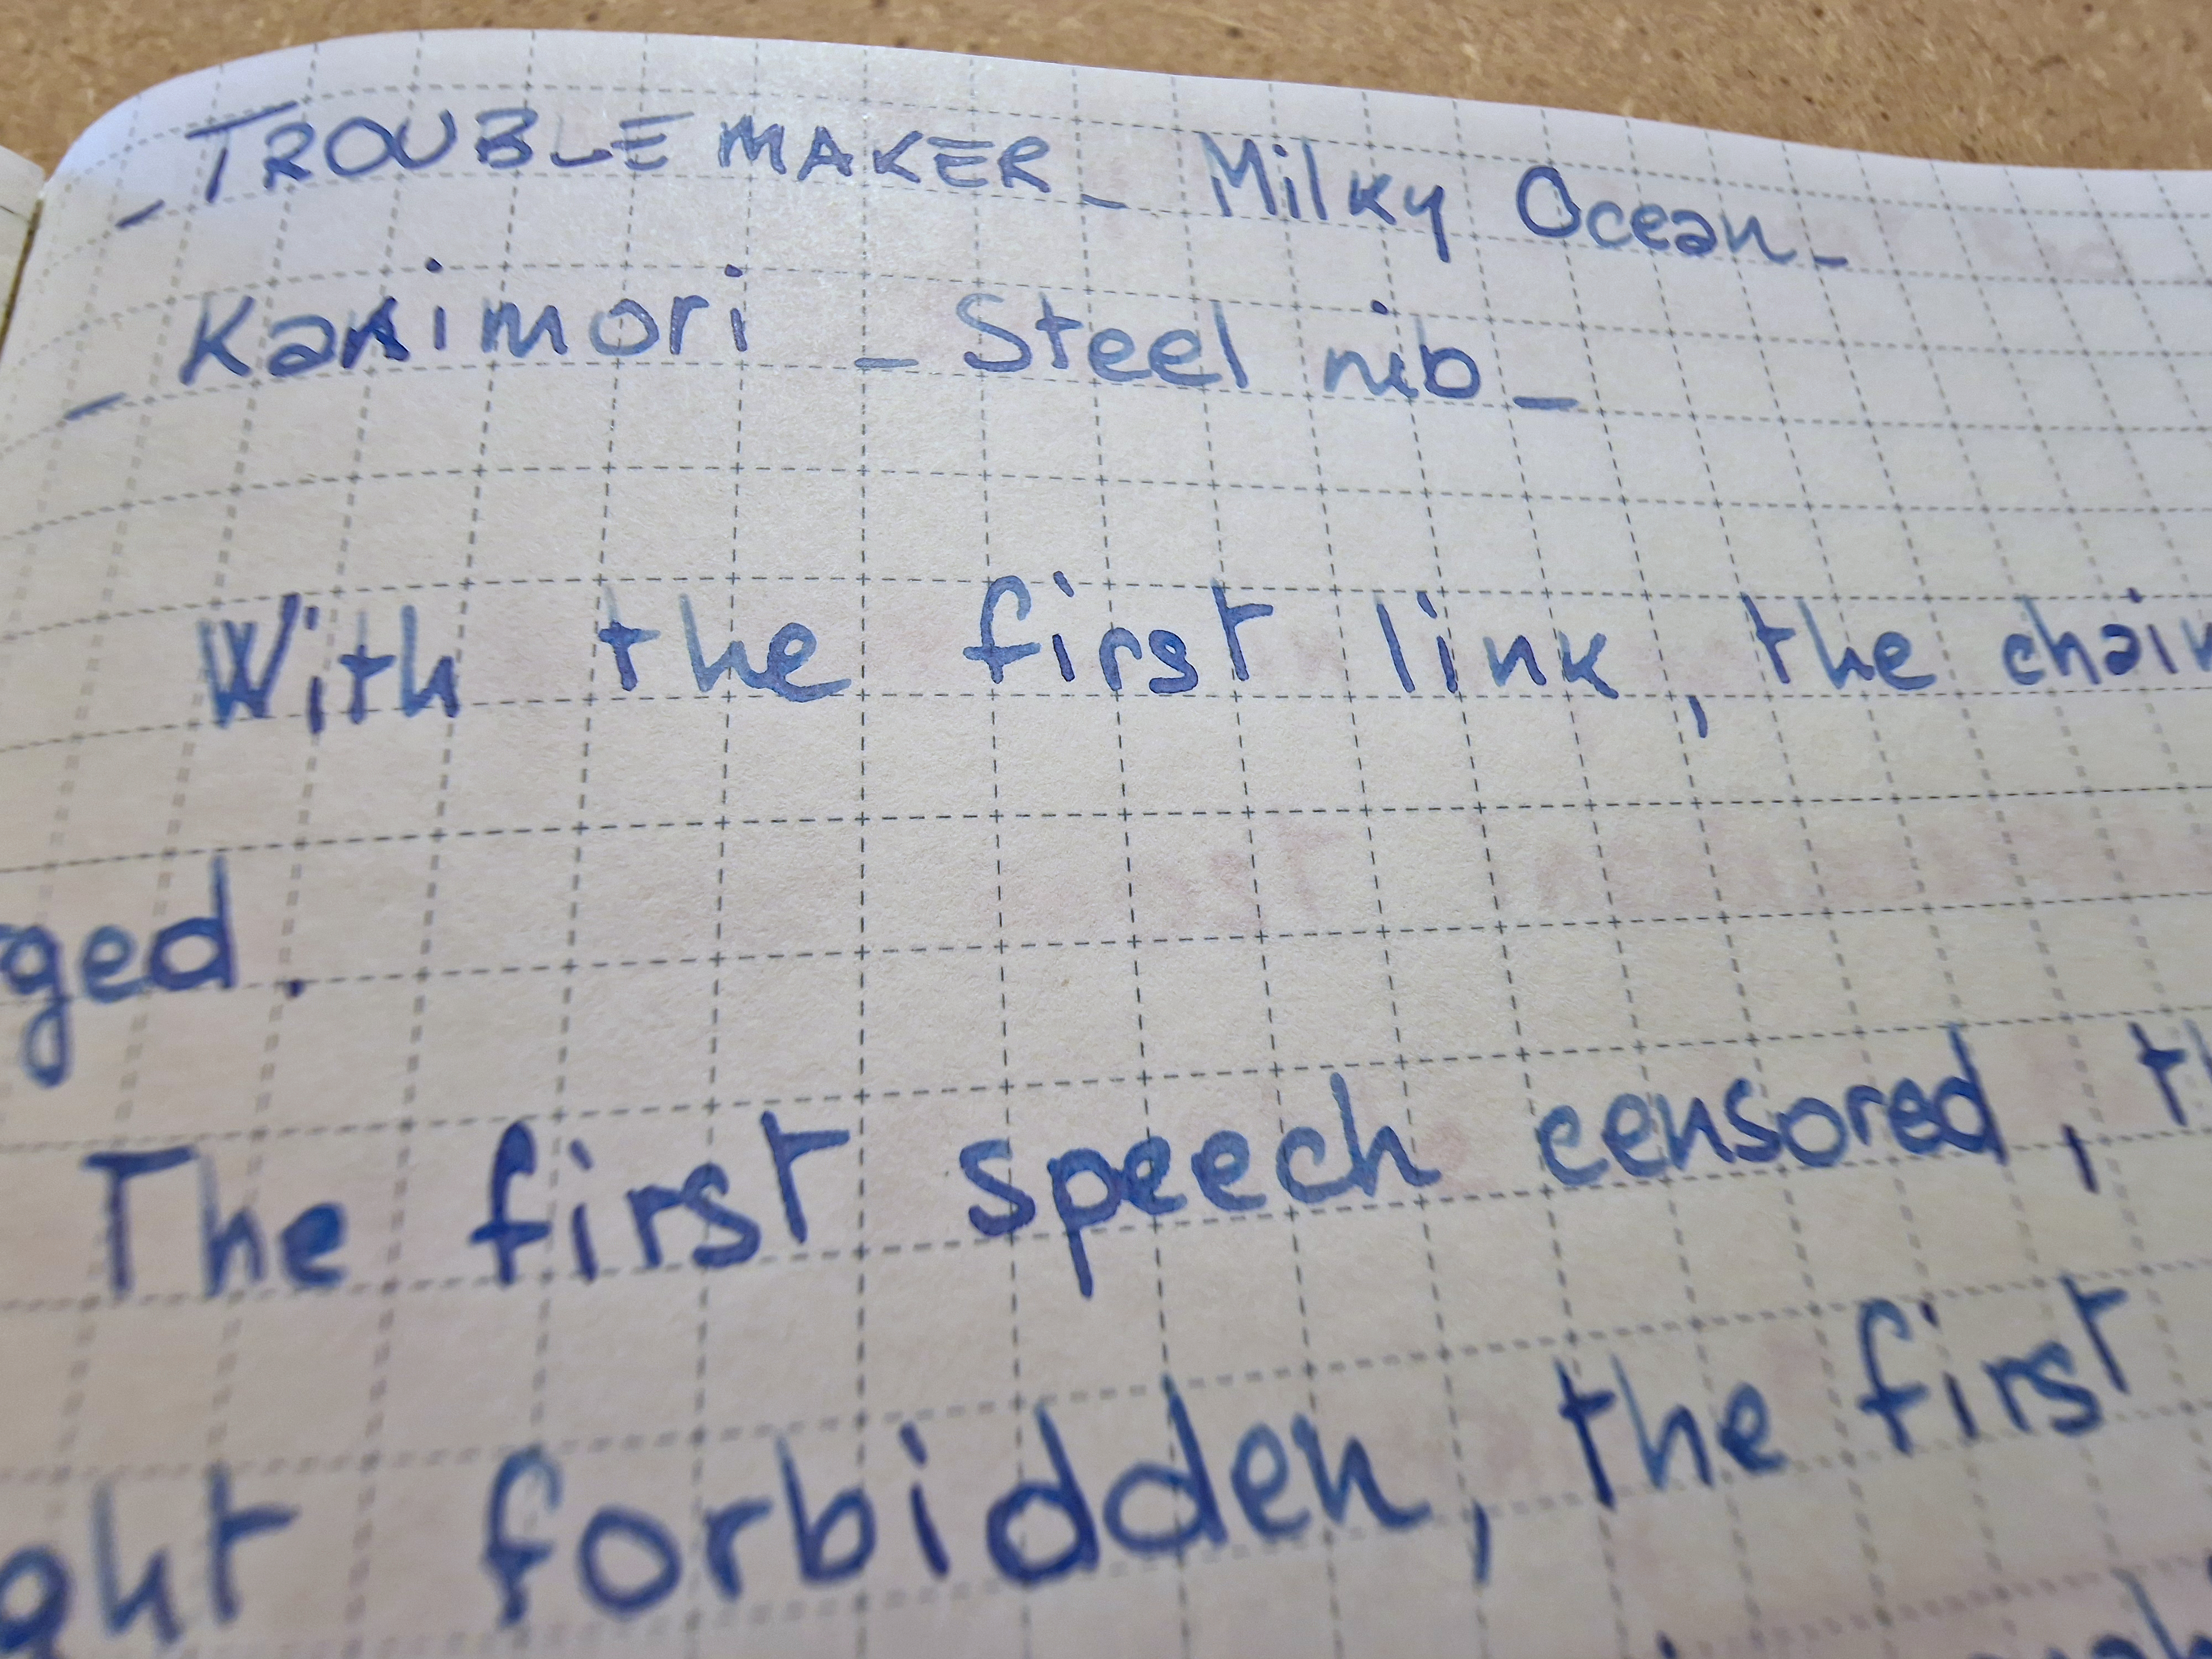 _ TROUBLEMAKER _ Milky Ocean _
_ Kakimori _ Steel nib _
With the first link, the chain
ged.
The first speech censored,
forbidden, the first